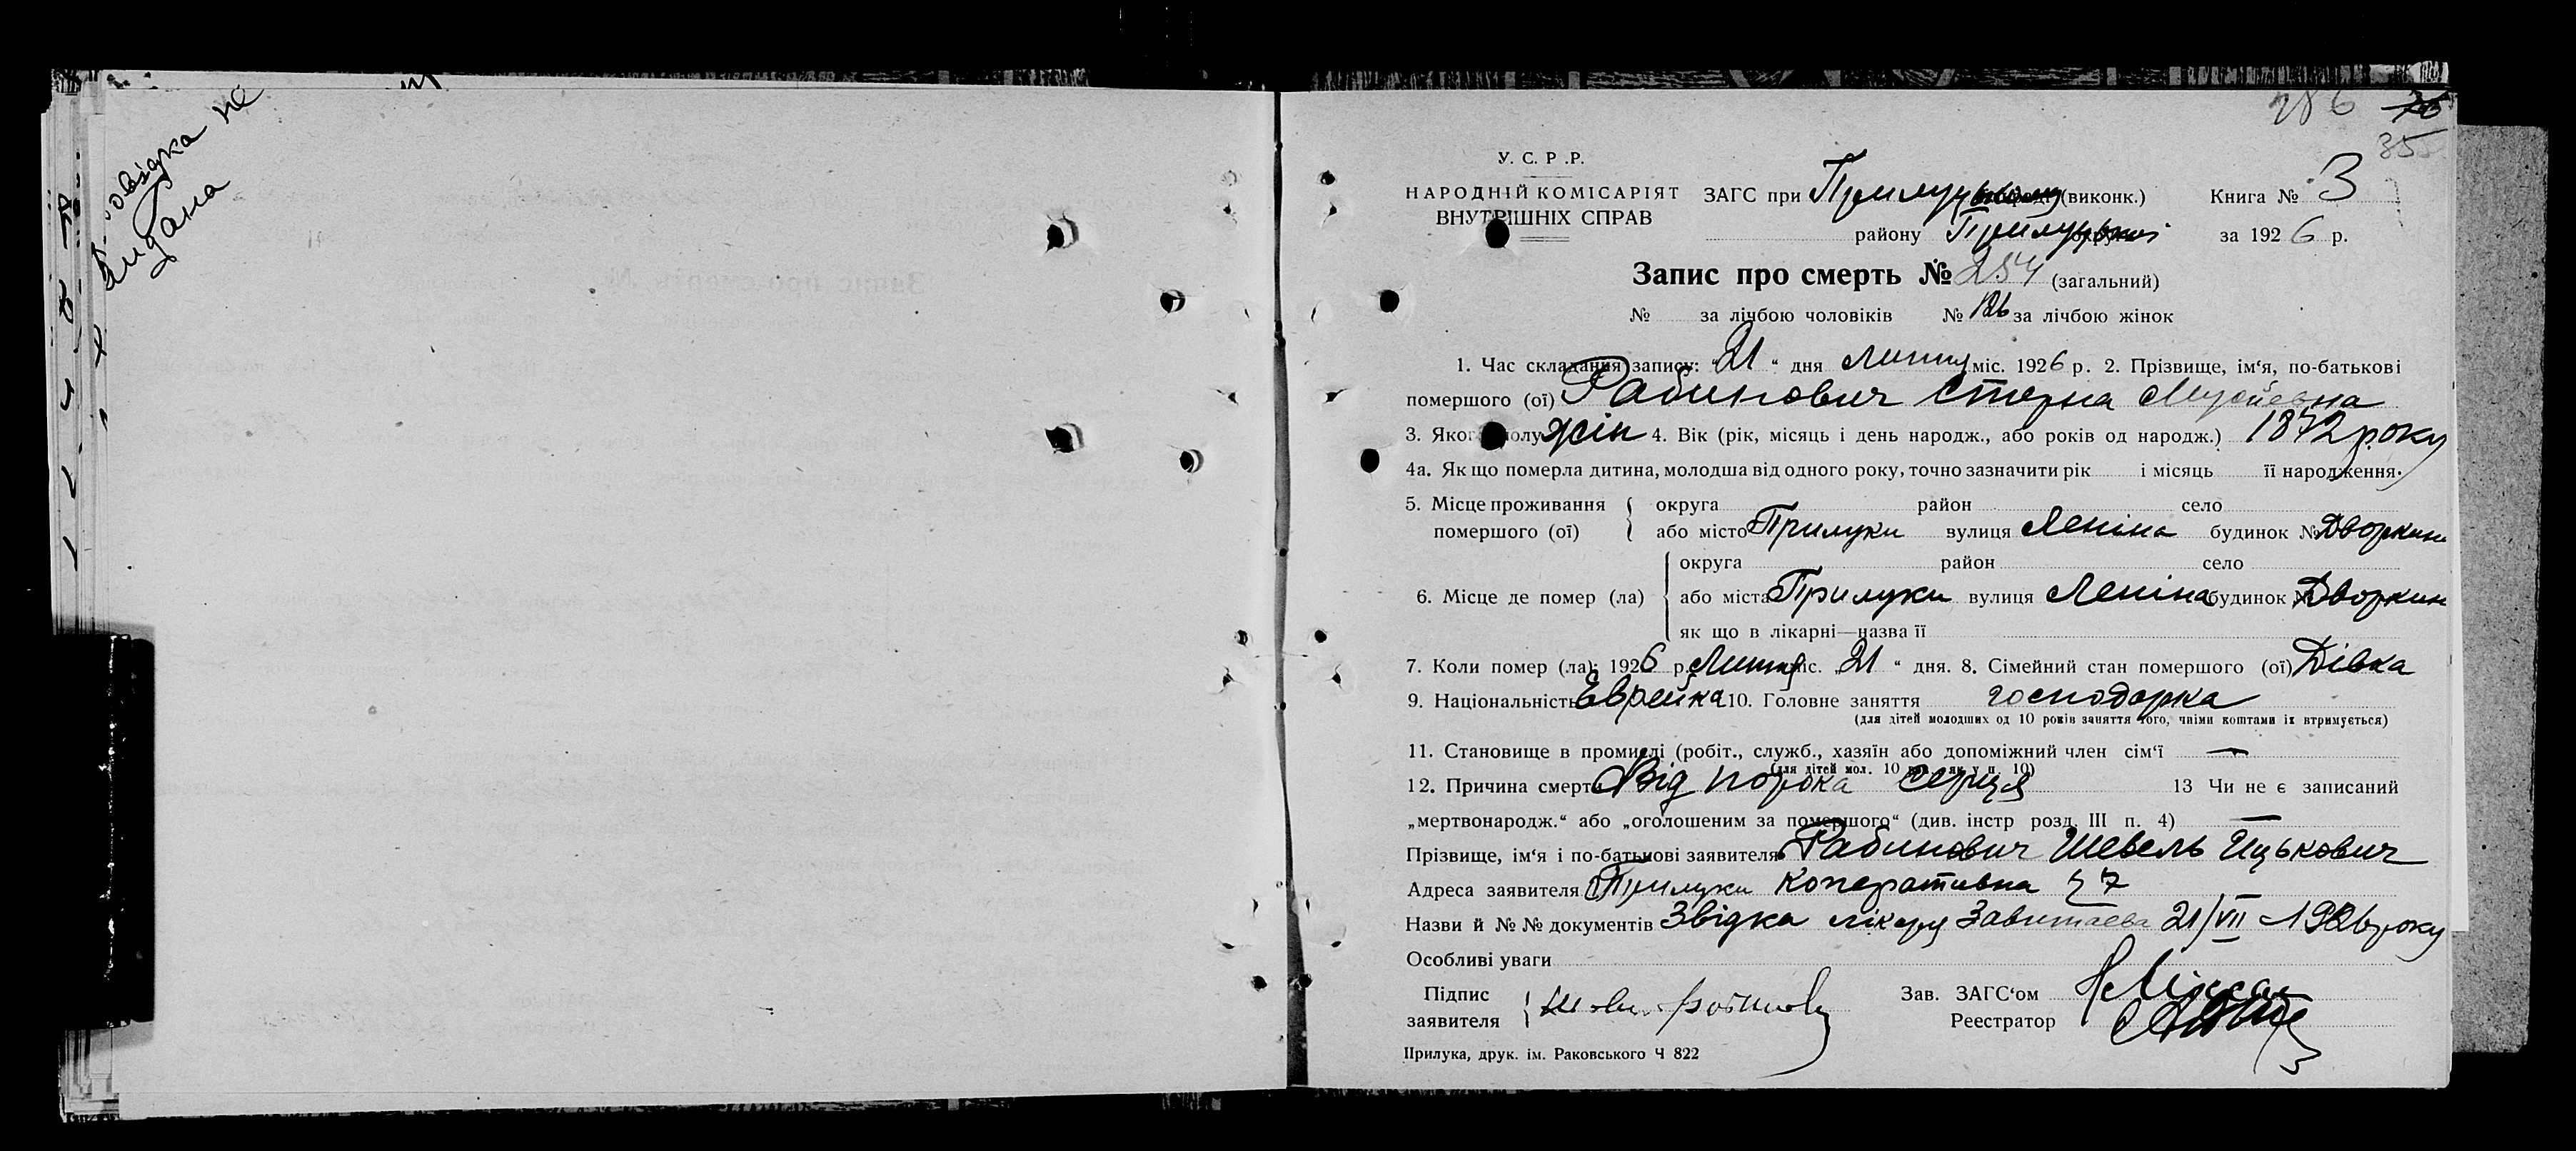 Довідка не
видана
286 76
35
У. С. Р. Р.
НАРОДНІЙ КОМІСАРІЯТ
ВНУТРІШНІХ СПРАВ
ЗАГС при Прилуцькому (виконк.)
району Прилуцької
Книга № 3
за 1926 р.
Запис про смерть № 254 (загальний)
№ за лічбою чоловіків № 126 за лічбою жінок
1. Час складання запису: „21“ дня липня міс. 1926 р. 2. Прізвище, ім‘я, по-батькові
помершого (ої) Рабинович Стерна
3. Якого полу жін 4. Вік (рік, місяць і день народж., або років од народж.) 1872 року
4а. Як що померла дитина, молодша від одного року, точно зазначити рік і місяць її народження.
5. Місце проживання помершого (ої) { округа район село
або місто Прилуки вулиця Леніна будинок № Дворкин
6. Місце де помер (ла) { округа район село
або міста Прилуки вулиця Леніна будинок № Дворкин
як що в лікарні—назва її
7. Коли помер (ла): 1926 р. Липня міс. „21“ дня. 8. Сімейний стан помершого (ої) Дівка
9. Національність Еврейка 10. Головне заняття господорка
(для дітей молодших од 10 років заняття того, чиїми коштами їх втримується)
11. Становище в промислі (робіт., служб., хазяїн або допоміжний член сім‘ї —
(для дітей мол. 10 рок. як у п. 10)
12. Причина смерти Від порока серця 13 Чи не є записаний
„мертвонародж.“ або „оголошеним за помершого“ (див. інстр розд. III п. 4) —
Прізвище, ім‘я і по-батькові заявителя Рабинович Шевель Ицькович
Адреса заявителя Прилуки Коперативна 27
Назви й №№ документів Звідка лікаря 21/VII – 1926 року
Особливі уваги
Підпис заявителя {
Зав. ЗАГС‘ом
Реестратор
Прилука, друк. ім. Раковського Ч 822